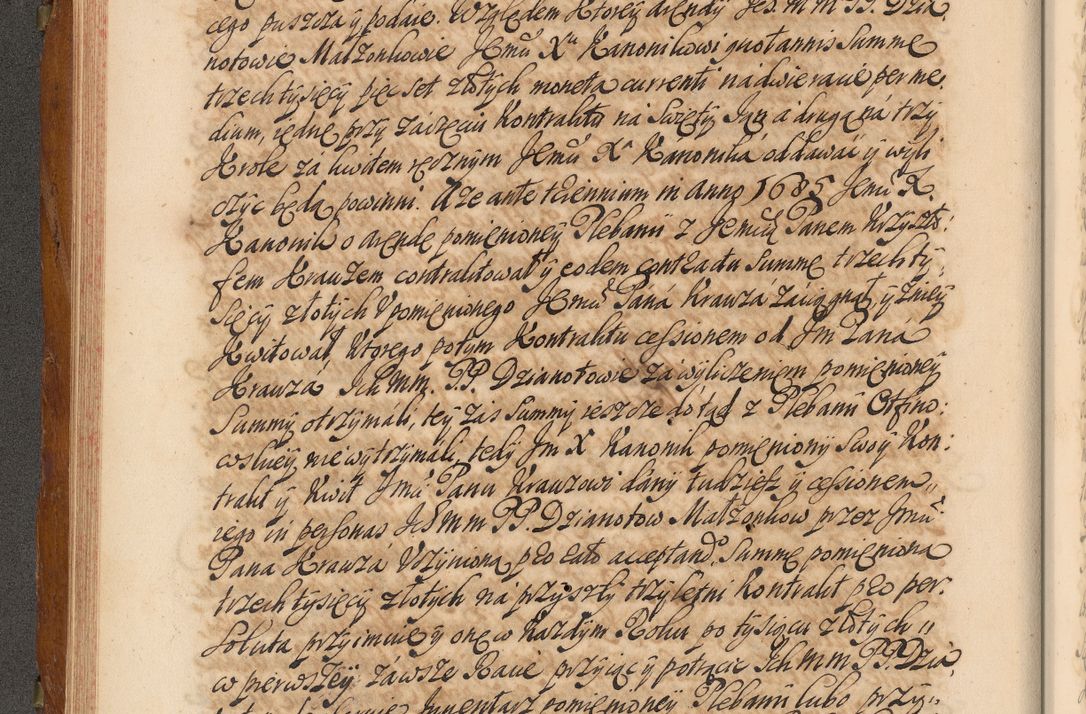 cego puszcza y podaie. Względem ktorey arendy Ich M M PP. Dzia
notowie Małżonkowie Jemu Xu Kanonikowi quotannis Summę
trzech tysięcy pięc set złotych moneta currenti na dwie racie per me,
dium, iednę przy zaczęciu Kontraktu na Swięty Jan a drugą na trzy
Krole za kwitem ręcznym Jemu Xu Kanonika oddawać y wyli
czyc będą powinni. A że ante triennium in anno 1685 Jemu X.
Kanonik o arendę pomienioney Plebanii z Jemcią Panem Krzyszto:
fem Krauzem contraktował y eodem contractu Summę trzech ty,
sięcy złotych Upomienionego Jemu Pana Krauza zaciągnął y z niey
Kwitował, Ktorego potym Kontraktu cessionem od Jm Pana
Krauza Ich Mm. PP. Dzianotowie za wyliczeniem pomienioney
Summy otrzymali, tey zas Summy ieszcze dotąd z Plebanii Otfino:
wskiey nie wytrzymali, tedy Jm X Kanonik pomieniony Swoy Kon:
trakt y Kwit Jmu Panu Krauzowi dany tudzież y cessionem
iego in personas Ich mm PP. Dzianotow Małżonkow przez Jmu
Pana Krauza Uczyniona pro rato acceptando, Summę pomieniona
trzech tysięcy złotych na przyszły trzyletni Kontrakt pro per:
soluta przyimuie y onę w każdym Roku po tysiącu złotych
w pierwszey zawsze Racie przyiąc y potrącic Ich MM PP. Dzia,
Inwentarz pomienioney Plebanii lubo przy